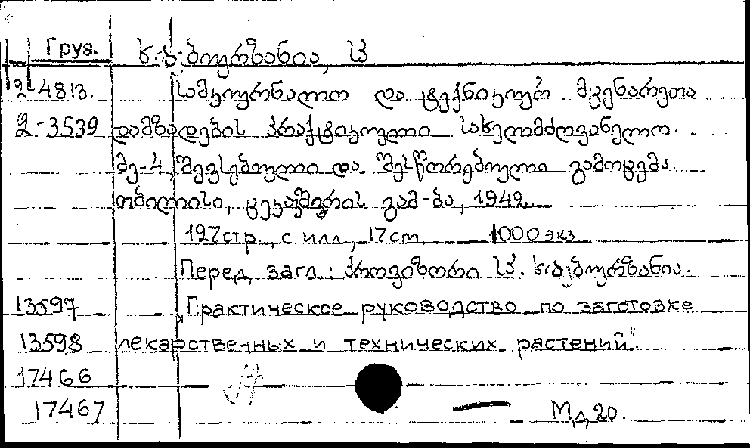 Груз.
2-4813. სამკურნალო და ტექნიკურ მცენარეთა
2-3539 დამზადების პრაქტიკული სახელმძღვანელო.
მე-4 შევსებული და შესწორებული გამოცემა
თბილისი, ცეკავშირის გამ-ბა, 1942.
127стр., с илл., 17см 1000 экз
Перед загл.: პროვიზორი
13597 "Практическое руководство по заготовке
13598 лекарственных и технических растений".
17466
17467 Мд 20.